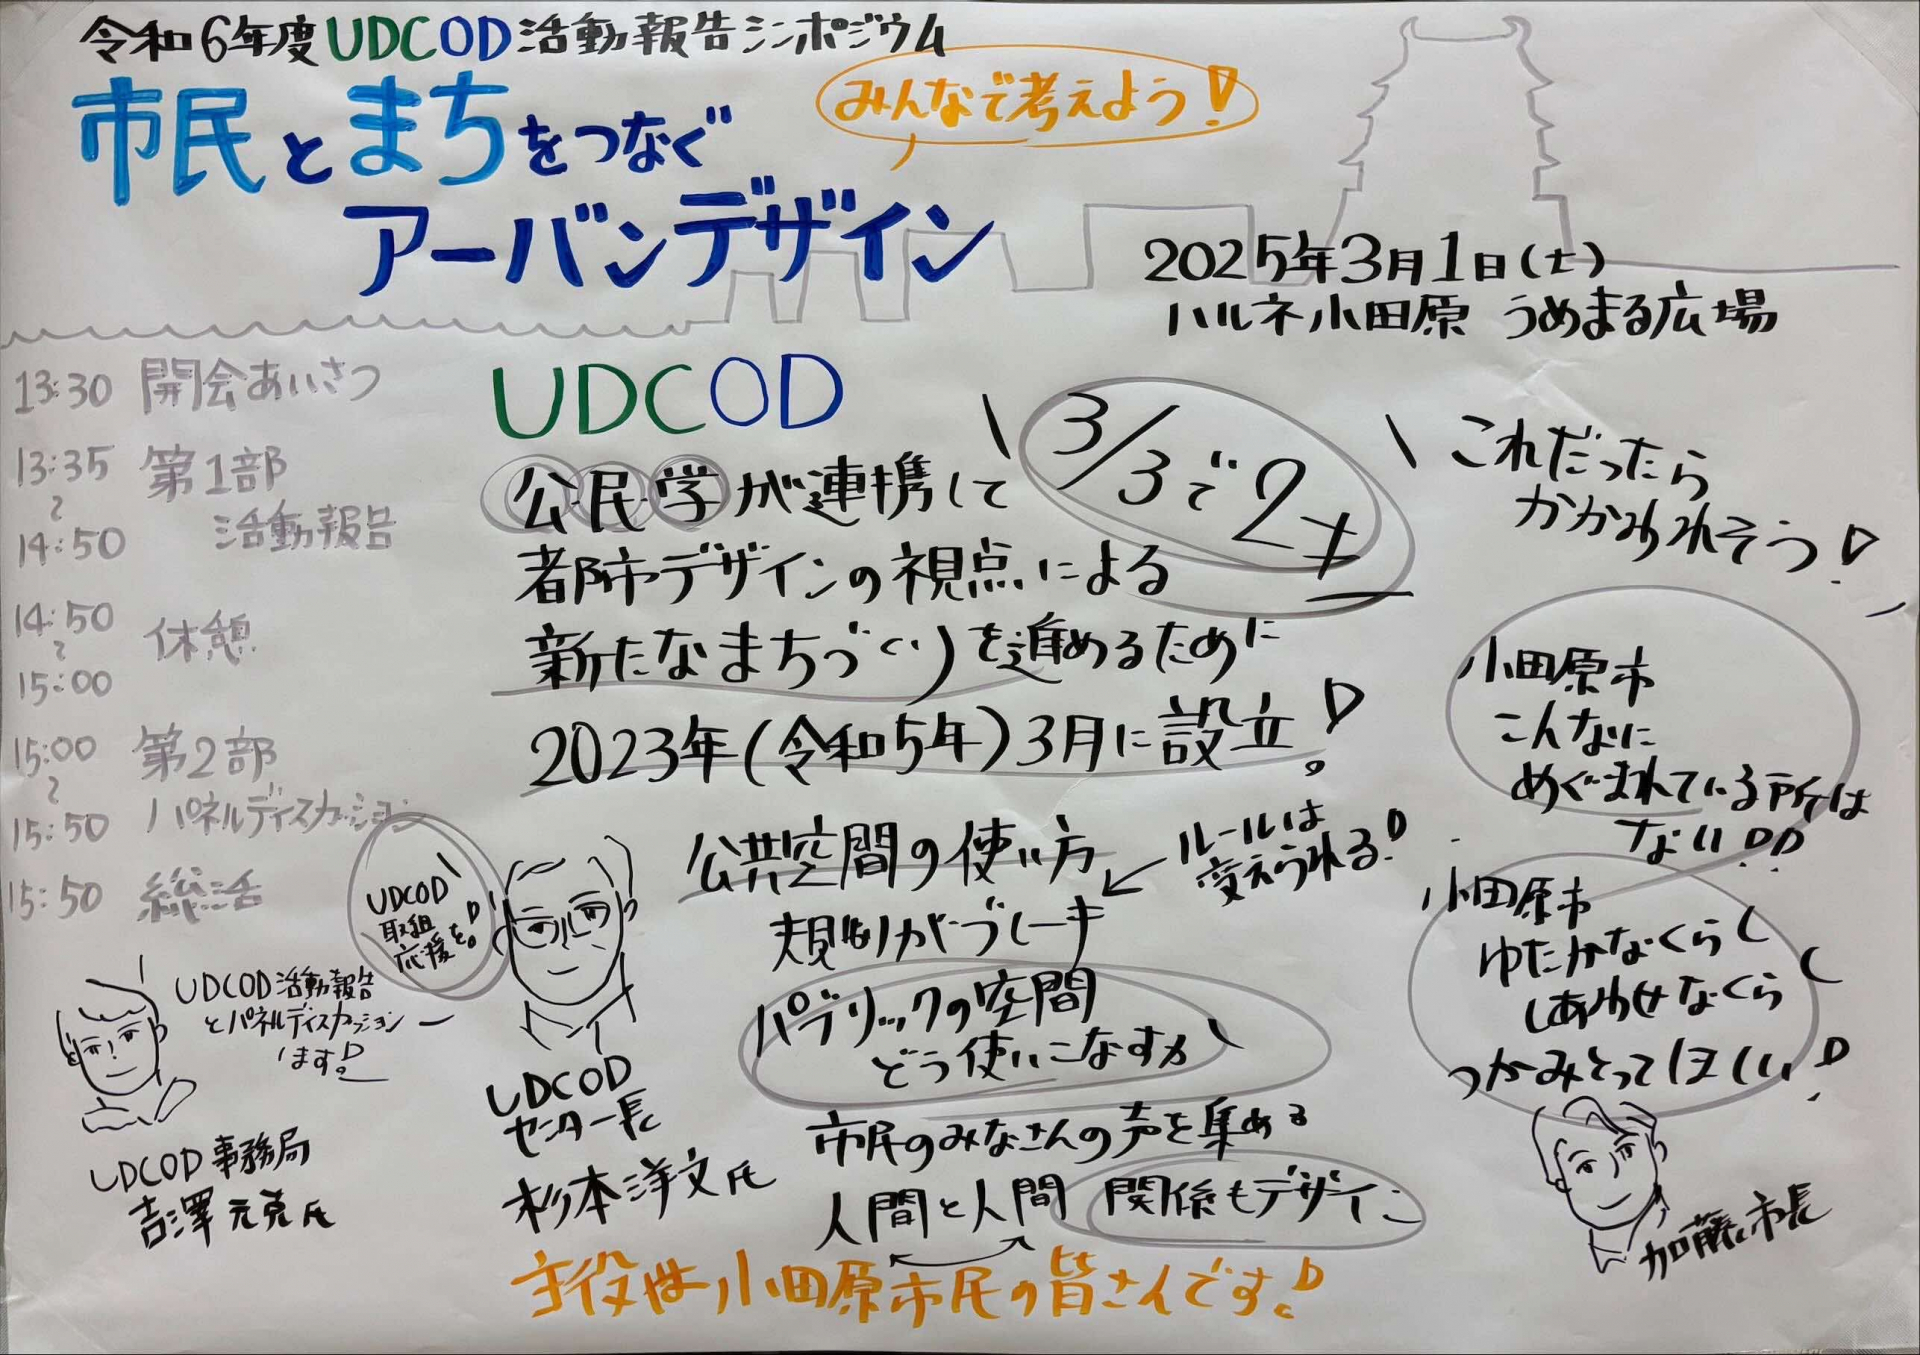 令和6年度UDCOD活動報告シンポジウム
みんなで考えよう!
市民とまちをつなぐ
アーバンデザイン
2025年3月1日(土)
ハルネ小田原 うめまる広場
13:30 開会あいさつ
13:35
〜
14:50
第1部
活動報告
14:50
〜
15:00
休憩
15:00
〜
15:50
第2部
パネルディスカッション
15:50 総活
UDCOD
公民学が連携して
都市デザインの視点による
新たなまちづくりを進めるために
2023年(令和5年)3月に設立!
3/3で2+
これだったら
かかわれそう!
小田原市
こんなに
めぐまれている所は
ない!!
小田原市
ゆたかなくらし
しあわせなくらし
つかみとってほしい!
加藤市長
UDCOD活動報告
とパネルディスカッション
します!
UDCOD事務局
吉澤元克氏
UDCOD
取組
応援を!
UDCOD
センター長
杉本洋文氏
公共空間の使い方
規制がブレーキ
ルールは
変えられる!
パブリックの空間
どう使いこなすか
市民のみなさんの声を集める
人間と人間 関係もデザイン
主役は小田原市民の皆さんです!